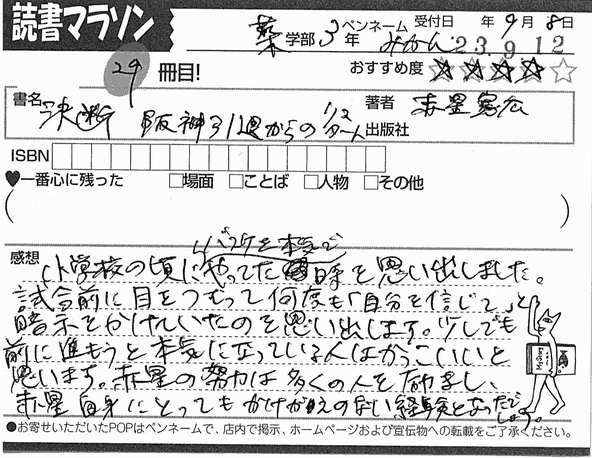 読書マラソン
薬学部3年 ペンネーム みかん 受付日 年9月8日
'23.9.12
29冊目!
おすすめ度 ★★★★☆
書名 決断 阪神引退からの 著者 赤星憲広
出版社
ISBN
♥一番心に残った □場面 □ことば □人物 □その他
感想
小学校の頃にバスケを本気でやってた時を思い出しました。
試合前に目をつむって何度も「自分を信じて」と
暗示をかけていたのを思い出します。少しでも
前に進もうと本気になっている人はかっこいいと
思います。赤星の努力は多くの人を励まし、
赤星自身にとってもかけがえのない経験となったでしょう。
●お寄せいただいたPOPはペンネームで、店内で掲示、ホームページおよび宣伝物への転載をご了承ください。